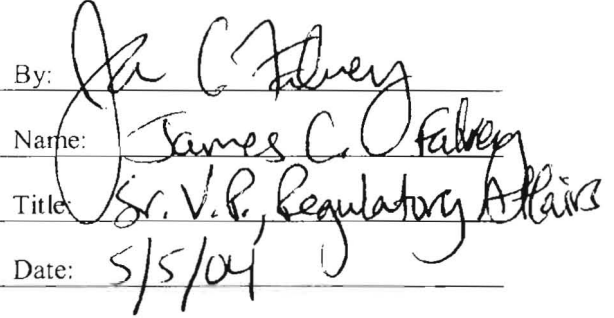 By: Ja C Falvey
Name: James C. Falvey
Title: Sr. V.P., Regulatory Affairs
Date: 5/5/04